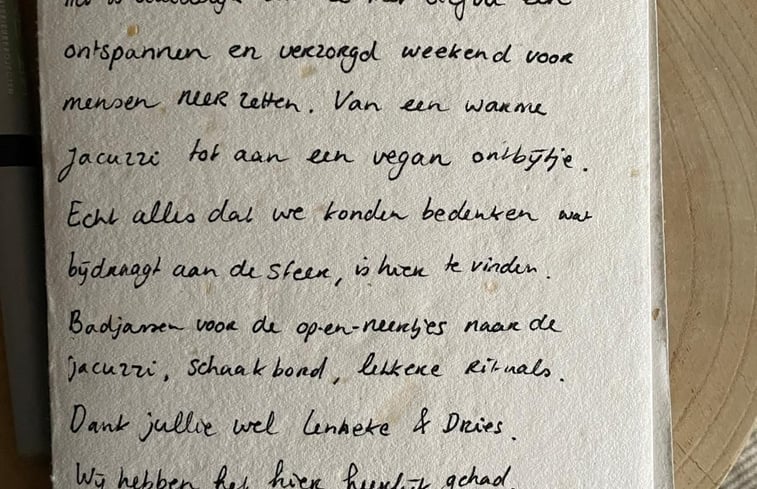 ontspannen en verzorgd weekend voor
mensen neer zetten. Van een warme
jacuzzi tot aan een vegan ontbijtje.
Echt alles dat we konden bedenken wat
bijdraagt aan de sfeer, is hier te vinden.
Badjassen voor de op-en-neertjes naar de
jacuzzi, schaakbord, lekkere rituals.
Dank jullie wel Lenneke & Dries.
Wij hebben het hier heerlijk gehad.